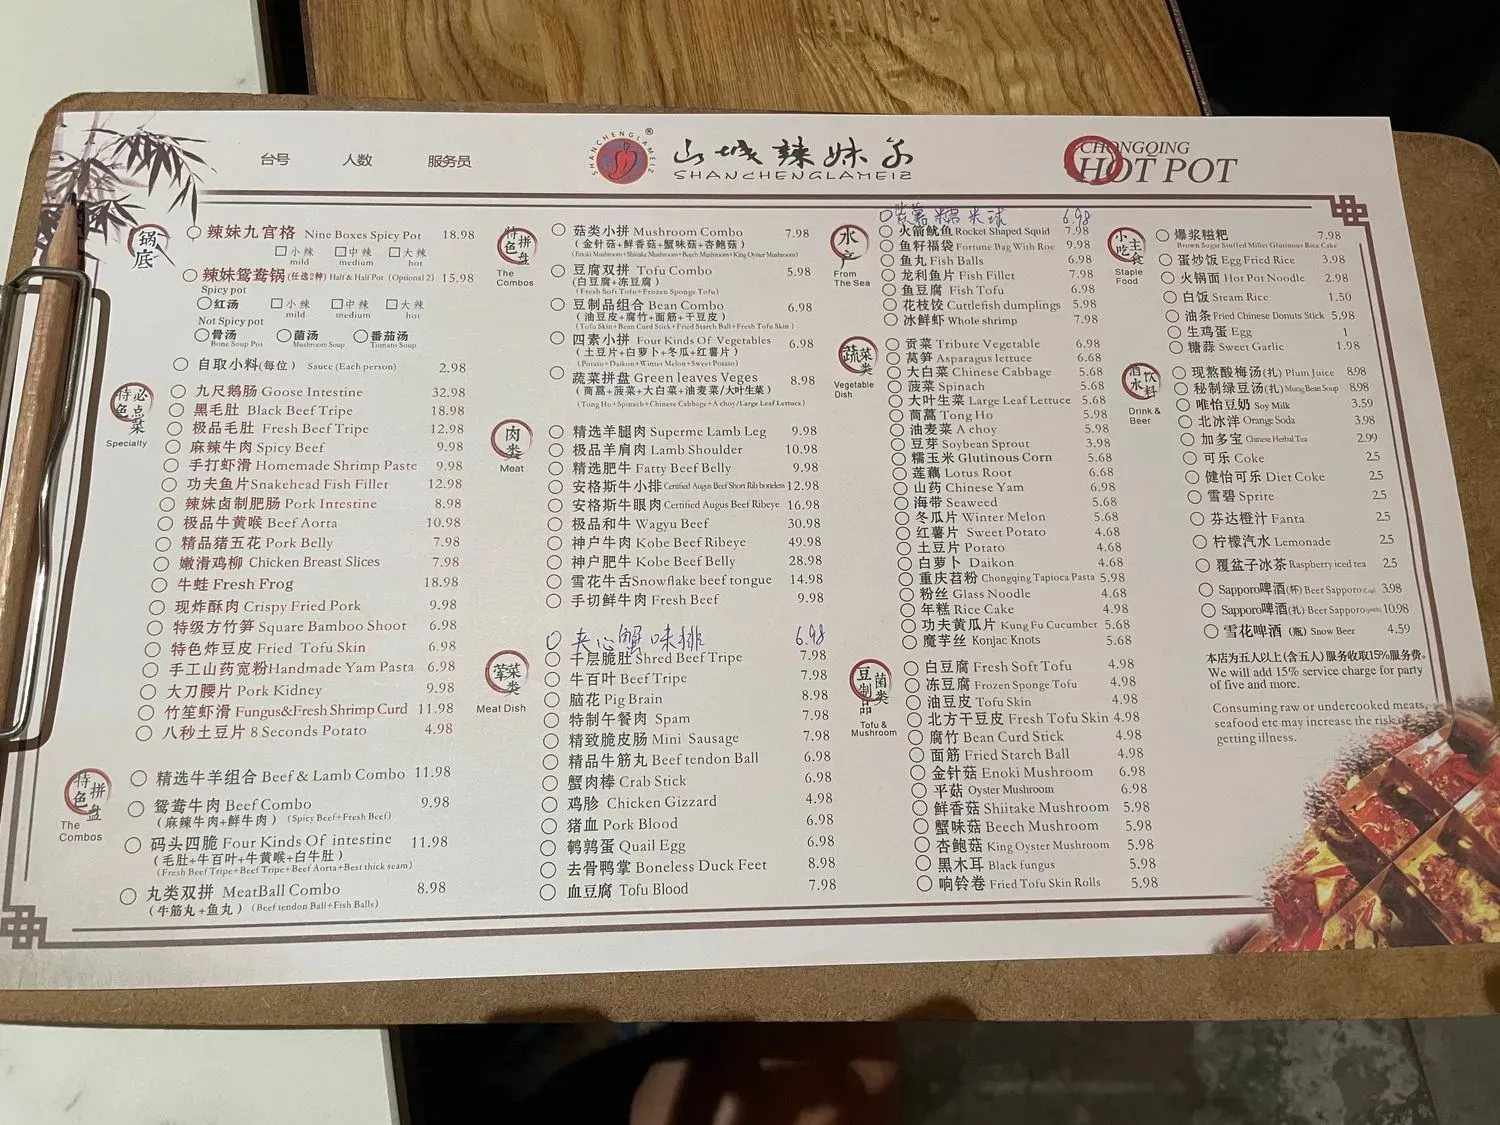 台号 人数 服务员
SHANCHENGLAMEIZ ®
山城辣妹子
SHANCHENGLAMEIZ
CHONGQING
HOT POT
锅底
辣妹九宫格 Nine Boxes Spicy Pot 18.98
小辣 中辣 大辣
mild medium hot
辣妹鸳鸯锅(任选2种) Half & Half Pot (Optional 2) 15.98
Spicy pot
红汤 小辣 中辣 大辣
mild medium hot
Not Spicy pot
骨汤 菌汤 番茄汤
Bone Soup Pot Mushroom Soup Tomato Soup
自取小料(每位) Sauce (Each person) 2.98
特色必点菜
Specialty
九尺鹅肠 Goose Intestine 32.98
黑毛肚 Black Beef Tripe 18.98
极品毛肚 Fresh Beef Tripe 12.98
麻辣牛肉 Spicy Beef 9.98
手打虾滑 Homemade Shrimp Paste 9.98
功夫鱼片 Snakehead Fish Fillet 12.98
辣妹卤制肥肠 Pork Intestine 8.98
极品牛黄喉 Beef Aorta 10.98
精品猪五花 Pork Belly 7.98
嫩滑鸡柳 Chicken Breast Slices 7.98
牛蛙 Fresh Frog 18.98
现炸酥肉 Crispy Fried Pork 9.98
特级方竹笋 Square Bamboo Shoot 6.98
特色炸豆皮 Fried Tofu Skin 6.98
手工山药宽粉 Handmade Yam Pasta 6.98
大刀腰片 Pork Kidney 9.98
竹笙虾滑 Fungus&Fresh Shrimp Curd 11.98
八秒土豆片 8 Seconds Potato 4.98
特色拼盘
The Combos
精选牛羊组合 Beef & Lamb Combo 11.98
鸳鸯牛肉 Beef Combo 9.98
(麻辣牛肉+鲜牛肉) (Spicy Beef+Fresh Beef)
码头四脆 Four Kinds Of intestine 11.98
(毛肚+牛百叶+牛黄喉+白牛肚)
(Fresh Beef Tripe+Beef Tripe+Beef Aorta+Best thick seam)
丸类双拼 MeatBall Combo 8.98
(牛筋丸+鱼丸) (Beef tendon Ball+Fish Balls)
特色拼盘
The Combos
菇类小拼 Mushroom Combo 7.98
(金针菇+鲜香菇+蟹味菇+杏鲍菇)
(Enoki Mushroom+Shiitake Mushroom+Beech Mushroom+King Oyster Mushroom)
豆腐双拼 Tofu Combo 5.98
(白豆腐+冻豆腐)
(Fresh Soft Tofu+Frozen Sponge Tofu)
豆制品组合 Bean Combo 6.98
(油豆皮+腐竹+面筋+干豆皮)
(Tofu Skin+Bean Curd Stick+Fried Starch Ball+Fresh Tofu Skin)
四素小拼 Four Kinds Of Vegetables 6.98
(土豆片+白萝卜+冬瓜+红薯片)
(Potato+Daikon+Winter Melon+Sweet Potato)
蔬菜拼盘 Green leaves Veges 8.98
(茼蒿+菠菜+大白菜+油麦菜/大叶生菜)
(Tong Ho+Spinach+Chinese Cabbage+A choy/Large Leaf Lettuce)
肉类
Meat
精选羊腿肉 Superme Lamb Leg 9.98
极品羊肩肉 Lamb Shoulder 10.98
精选肥牛 Fatty Beef Belly 9.98
安格斯牛小排 Certified Augus Beef Short Rib boneless 12.98
安格斯牛眼肉 Certified Augus Beef Ribeye 16.98
极品和牛 Wagyu Beef 30.98
神户牛肉 Kobe Beef Ribeye 49.98
神户肥牛 Kobe Beef Belly 28.98
雪花牛舌 Snowflake beef tongue 14.98
手切鲜牛肉 Fresh Beef 9.98
夹心蟹味排 6.98
荤菜类
Meat Dish
千层脆肚 Shred Beef Tripe 7.98
牛百叶 Beef Tripe 7.98
脑花 Pig Brain 8.98
特制午餐肉 Spam 7.98
精致脆皮肠 Mini Sausage 7.98
精品牛筋丸 Beef tendon Ball 6.98
蟹肉棒 Crab Stick 6.98
鸡胗 Chicken Gizzard 4.98
猪血 Pork Blood 6.98
鹌鹑蛋 Quail Egg 6.98
去骨鸭掌 Boneless Duck Feet 8.98
血豆腐 Tofu Blood 7.98
紫薯糯米球 6.98
水产
From The Sea
火箭鱿鱼 Rocket Shaped Squid 7.98
鱼籽福袋 Fortune Bag With Roe 9.98
鱼丸 Fish Balls 6.98
龙利鱼片 Fish Fillet 7.98
鱼豆腐 Fish Tofu 6.98
花枝饺 Cuttlefish dumplings 5.98
冰鲜虾 Whole shrimp 7.98
蔬菜类
Vegetable Dish
贡菜 Tribute Vegetable 6.98
莴笋 Asparagus lettuce 6.68
大白菜 Chinese Cabbage 5.68
菠菜 Spinach 5.68
大叶生菜 Large Leaf Lettuce 5.68
茼蒿 Tong Ho 5.98
油麦菜 A choy 5.98
豆芽 Soybean Sprout 3.98
糯玉米 Glutinous Corn 5.68
莲藕 Lotus Root 6.68
山药 Chinese Yam 6.98
海带 Seaweed 5.68
冬瓜片 Winter Melon 5.68
红薯片 Sweet Potato 4.68
土豆片 Potato 4.68
白萝卜 Daikon 4.68
重庆苕粉 Chongqing Tapioca Pasta 5.98
粉丝 Glass Noodle 4.68
年糕 Rice Cake 4.98
功夫黄瓜片 Kung Fu Cucumber 5.68
魔芋丝 Konjac Knots 5.68
豆制品菌类
Tofu & Mushroom
白豆腐 Fresh Soft Tofu 4.98
冻豆腐 Frozen Sponge Tofu 4.98
油豆皮 Tofu Skin 4.98
北方干豆皮 Fresh Tofu Skin 4.98
腐竹 Bean Curd Stick 4.98
面筋 Fried Starch Ball 4.98
金针菇 Enoki Mushroom 6.98
平菇 Oyster Mushroom 6.98
鲜香菇 Shiitake Mushroom 5.98
蟹味菇 Beech Mushroom 5.98
杏鲍菇 King Oyster Mushroom 5.98
黑木耳 Black fungus 5.98
响铃卷 Fried Tofu Skin Rolls 5.98
小吃主食
Staple Food
爆浆糍粑 7.98
Brown Sugar Stuffed Millet Glutinous Rice Cake
蛋炒饭 Egg Fried Rice 3.98
火锅面 Hot Pot Noodle 2.98
白饭 Steam Rice 1.50
油条 Fried Chinese Donuts Stick 5.98
生鸡蛋 Egg 1
糖蒜 Sweet Garlic 1.98
酒水饮料
Drink & Beer
现熬酸梅汤(扎) Plum Juice 8.98
秘制绿豆汤(扎) Mung Bean Soup 8.98
唯怡豆奶 Soy Milk 3.59
北冰洋 Orange Soda 3.98
加多宝 Chinese Herbal Tea 2.99
可乐 Coke 2.5
健怡可乐 Diet Coke 2.5
雪碧 Sprite 2.5
芬达橙汁 Fanta 2.5
柠檬汽水 Lemonade 2.5
覆盆子冰茶 Raspberry iced tea 2.5
Sapporo啤酒(杯) Beer Sapporo(Cup) 3.98
Sapporo啤酒(扎) Beer Sapporo 10.98
雪花啤酒 (瓶) Snow Beer 4.59
本店为五人以上(含五人)服务收取15%服务费。
We will add 15% service charge for party
of five and more.
Consuming raw or undercooked meats,
seafood etc may increase the risk of
getting illness.